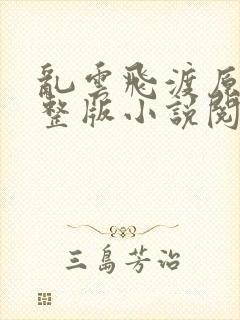 亂雲飛渡原
整版小說閱
三島芳治